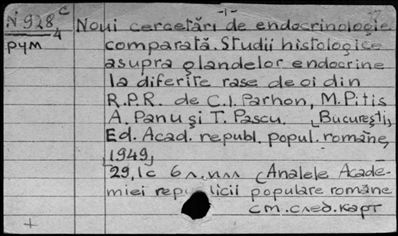 N 928 c/4
рум
Noui cercetări de endocrinologie
comparată. Studii histologice
asupra glandelor endocrine
la diferite rase de oi din
R.P.R. de C.I. Parhon, M. Pitis
A. Panu și T. Pascu. [București,
Ed. Acad. republ. popul. române,
1949]
29, 1 c 6 л. илл (Analele Acade-
miei republicii populare române
см. след. карт